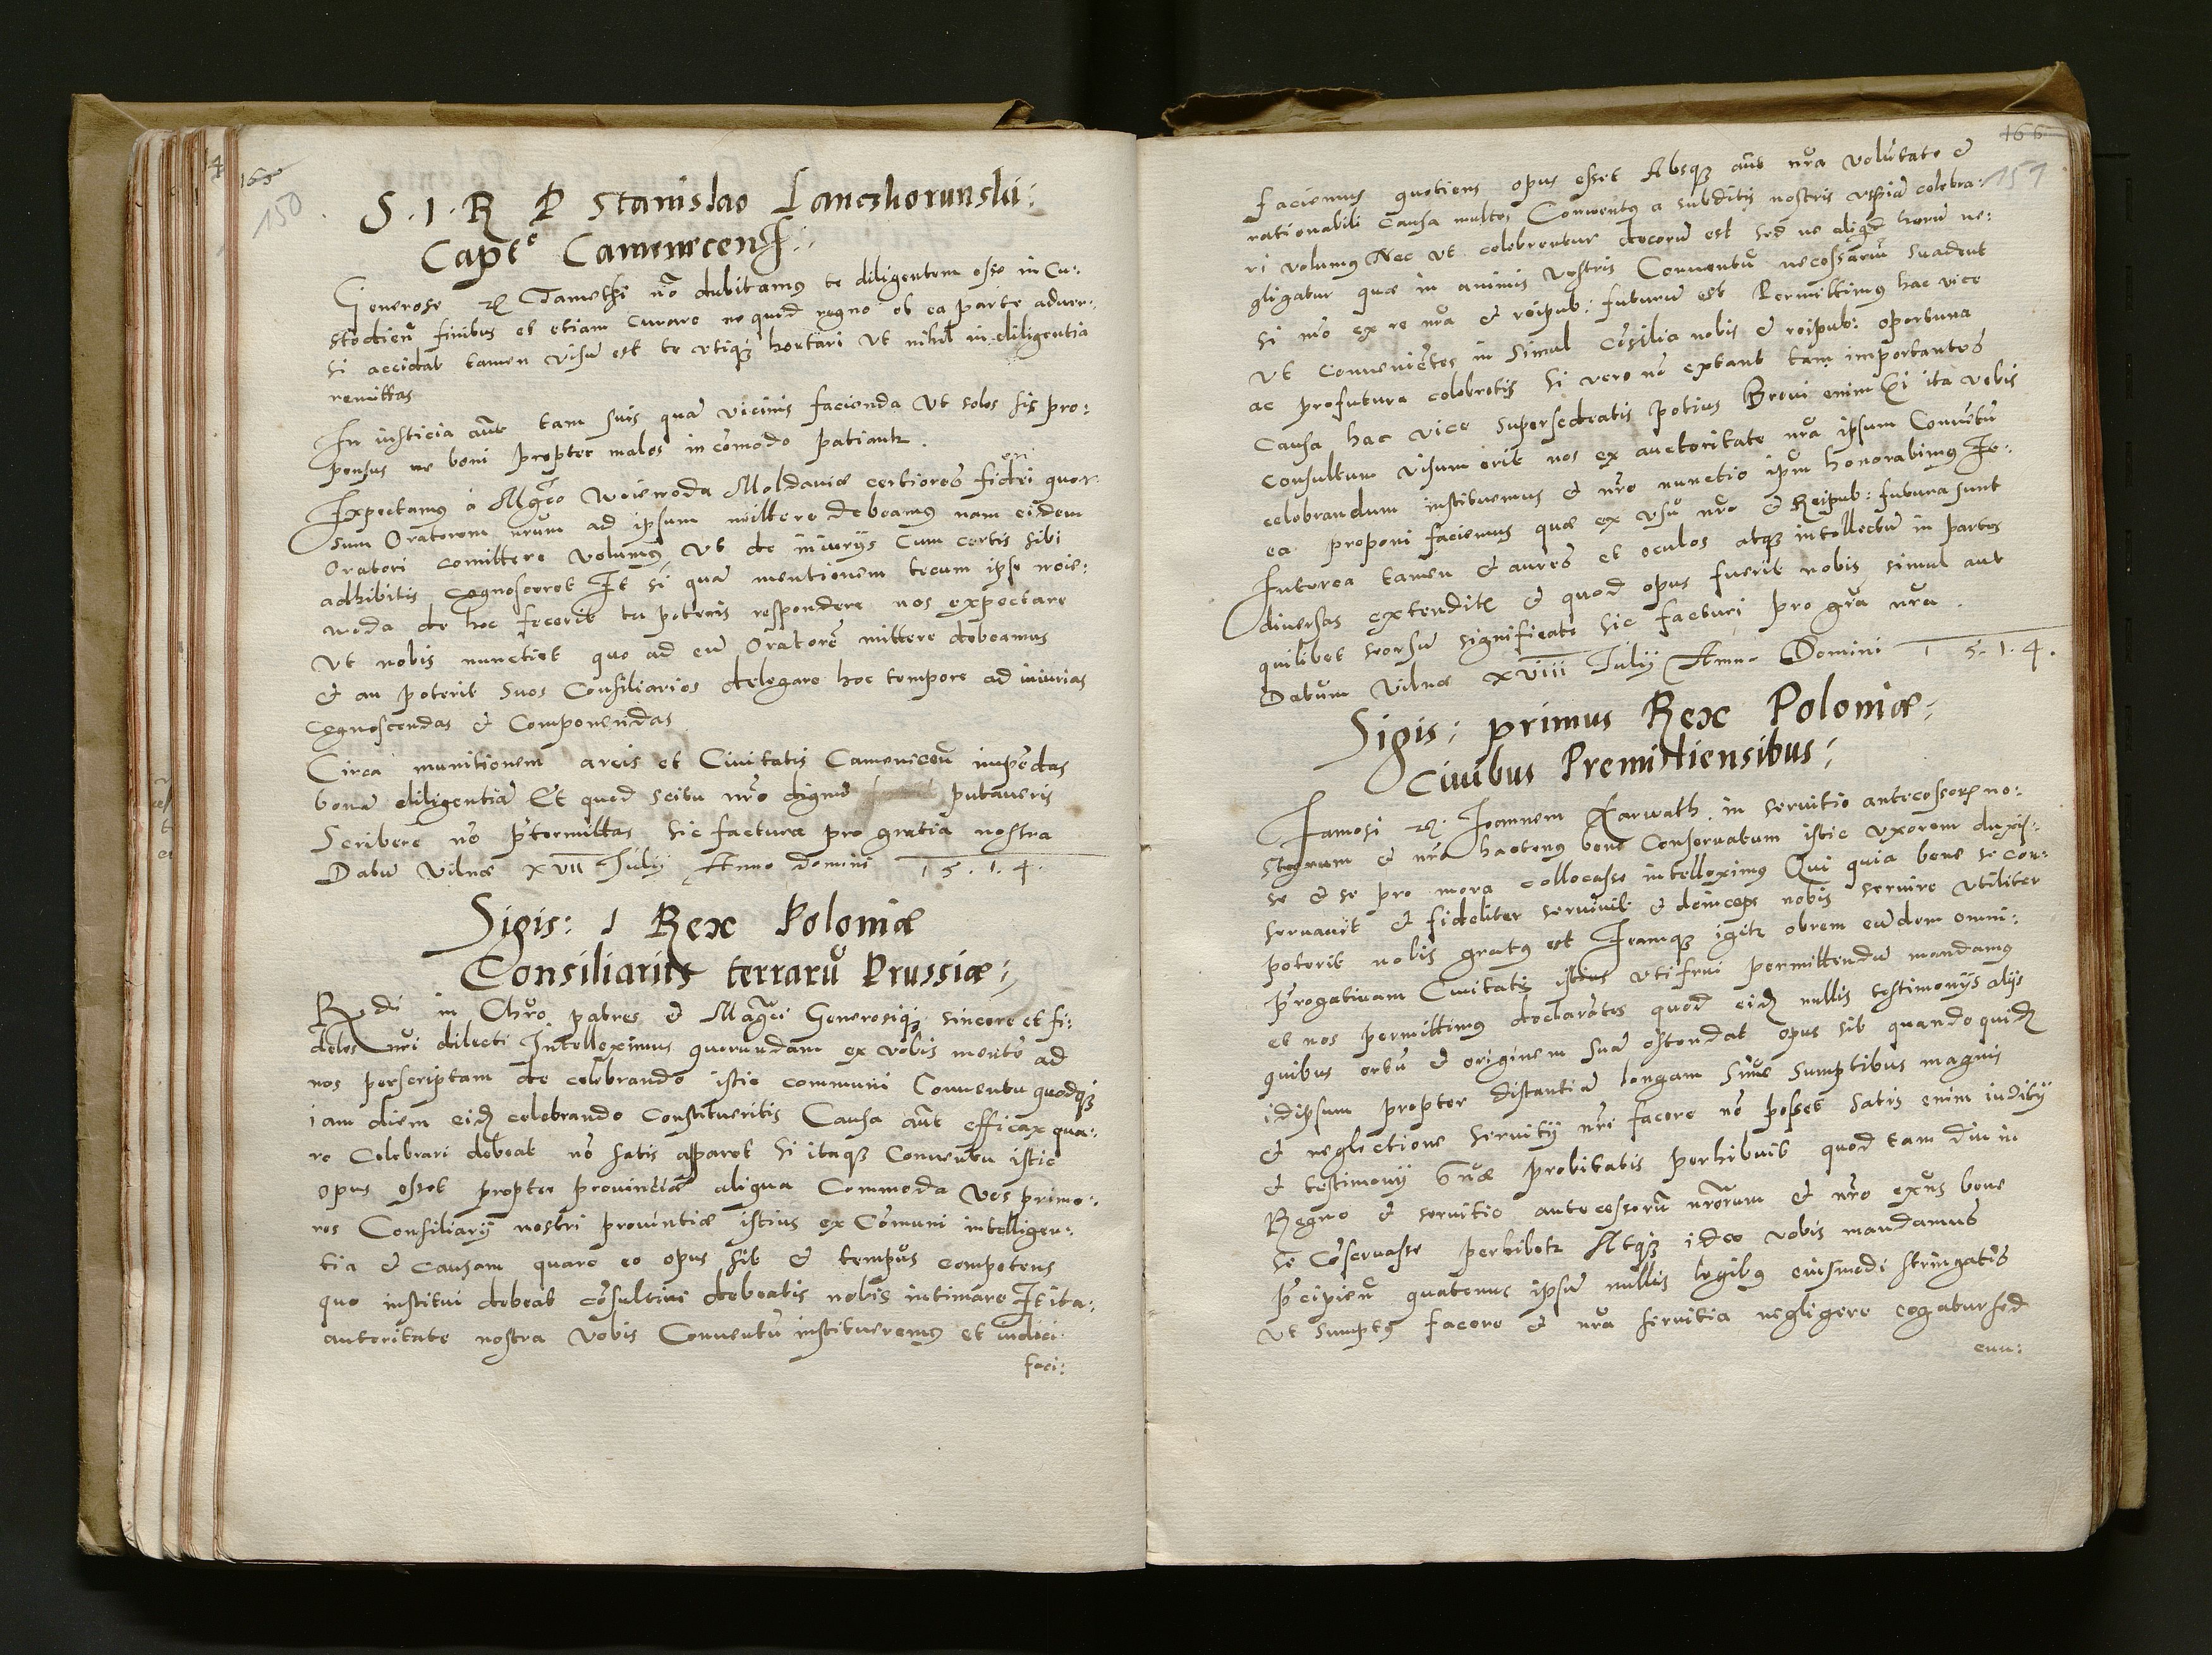 163
150
S. I. R P Stanislao Lanczhorunski:
Capt͞e Camenecens:
Generose &c Tametsi nō dubitamꝯ te diligentem esse in Cu:
stodien̄ finibus et etiam curare ne quid regno ob ea parte adver:
si accidat tamen visū est te utiqꝫ hortari ut nihil in diligentia
remittas
In iusticia aūt tam suis quā vicinis facienda ut soles sis pro:
pensus ne boni propter malos incōmodo patiantꝛ.
Expectamꝯ a Mgᷓco Woiewoda Moldaviæ certiores fieri quor
en
sum Oratorem nr̄um ad ipsum mittere debeamꝯ nam eidem
Oratori comittere volumꝯ ut de iniuryis cum certis sibi
adhibitis cognosceret Et si quā mentionem tecum ipse woie:
woda de hoc fecerit tu poteris respondere nos expectare
ut nobis nunctiet quo ad eū Oratorē mittere debeamus
& an poterit suos Consiliarios delegare hoc tempore ad iniurias
cognoscendas & Componendas
Circa munitionem arcis et Civitatis Camenicen̄ impēdas
bonā diligentiā Et quod scitu nr̄o dignū putaveris
Scribere nō p̄termittas sic facturæ pro gratia nostra
Datū Vilnæ XVII Julij Anno domini 1 5. 1. 4.
Sigis: I Rex Poloniæ
Consiliariis terrarū Prussiæ:
Rdi in Chr̄o patres & Magᷓci Generosiqꝫ sincere et fi:
deles nr̄i dilecti Intelleximus quorundam ex vobis mentē ad
nos perscriptam de celebrando istic communi Conventu quodqꝫ
iam diem eid̄ celebrando Constitueritis Causa aūt efficax qua:
re Celebrari debeat nō satis apparet si itaqꝫ Conventu istic
opus esset propter provinciæ aliqua Commoda vos primo:
res Consiliarij nostri provintiæ istius ex Cōmuni intelligen:
tia & causam quare eo opus sit & tempus competens
quo institui debeat cōsultivi debeatis nobis intimare Et ita:
autoritate nostra vobis Conventū institueremꝯ et indici
faci:
166
151
faciemus quotiens opus esset Absqꝫ aūt nr̄a volūtate &
rationabili causa multos Conventꝯ a subditis nostris uspiā celebra:
ri volumꝯ Nec ut celebrentur decorū est sed ne aliqd̄ horū ne:
gligatur quæ in animis vestris Conventū necessariū suadent
si nō ex re nr̄a & reipub: futurū est Permittimꝯ hac vice
ut convenientes in simul cōsilia nobis & reipub: oportuna
ac profutura celebretis si vero nō extant tam importantes
causa hac vice supersedeatis potius Brevi enim si ita vobis
consultum visum erit nos ex auctoritate nr̄a ipsum Convētū
celebrandum instituemus & nr̄o nunctio ip̄m honorabimꝯ Et
ea proponi faciemus quæ ex usu nr̄o & Reipub: futura sunt
Interea tamen & aures et oculos atqꝫ intellectū in partes
diversas extendite & quod opus fuerit nobis simul aut
quilibet seorsū significate sic facturi pro gr̄a nr̄a.
Datum Vilnæ XVIII Julij Anno Domini 1 5. 1. 4.
Sigis: primus Rex Poloniæ:
Civibus Premisliensibus:
Famosi &c. Joannem Karwath in servitio antecessorꝝ no:
strorum & nr̄a hactenꝯ bene Conservatum istic uxorem duxis:
se & se pro mora collocasse intelleximꝯ Qui quia bene se con:
servavit & fideliter servivit & deinceps nobis servire utiliter
poterit nobis gratꝯ est Eamqꝫ igitꝛ obrem eūdem omni:
p̄rogativam Civitatis istius uti frui permittendū mandamꝯ
et nos permittimꝯ declarātes quod eid̄ nullis testimonijs alijs
quibus ortū & originem suā ostendat opus sit quandoquid̄
idipsum propter distantiā longam sine sumptibus magnis
& neglectione servitij nr̄i facere nō posset satis enim iuditij
& testimonij suæ probitatis perhibuit quod tam diu in
Regno & servitio antecessorū nr̄orum & nr̄o exn̄s bene
se cōservasse perhibetꝛ Atqꝫ ideo vobis mandamus
p̄cipien̄ quatenus ipsū nullis legibꝯ eiusmodi stringatis
ut sumptꝯ facere & nr̄a servitia negligere cogatur sed
eun: